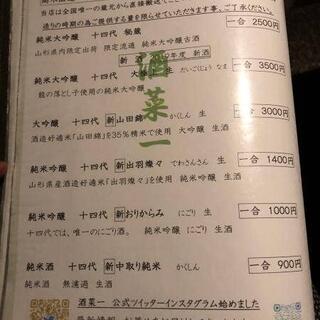 当店は全国唯一の蔵元から直接搬送して
造りの時期の為ご提供する量を限らせていただきます事、ご了承ください。
純米大吟醸 十四代 秘蔵 一合 2500円
山形県内限定出荷 限定流通 純米大吟醸古酒
新酒 年度 新酒
純米大吟醸 十四代 大 生 だいごじょう 一合 3500円
龍の落とし子使用の純米大吟醸
大吟醸 十四代 新 山田錦 かくしん 生 一合 3000円
酒造好適米「山田錦」を35％精米で使用 大吟醸 生酒
酒菜一
純米吟醸 十四代 新 出羽燦々 でわさんさん 生 一合 1400円
山形県産酒造好適米「出羽燦々」を使用 純米吟醸 生酒
純米吟醸 十四代 新 おりからみ にごり 生 一合 1000円
十四代では、唯一のにごり酒。 純米吟醸 にごり 生酒
純米酒 十四代 新 中取り純米 かくしん 一合 900円
純米酒 無濾過 生酒
酒菜一 公式ツイッターインスタグラム始めました